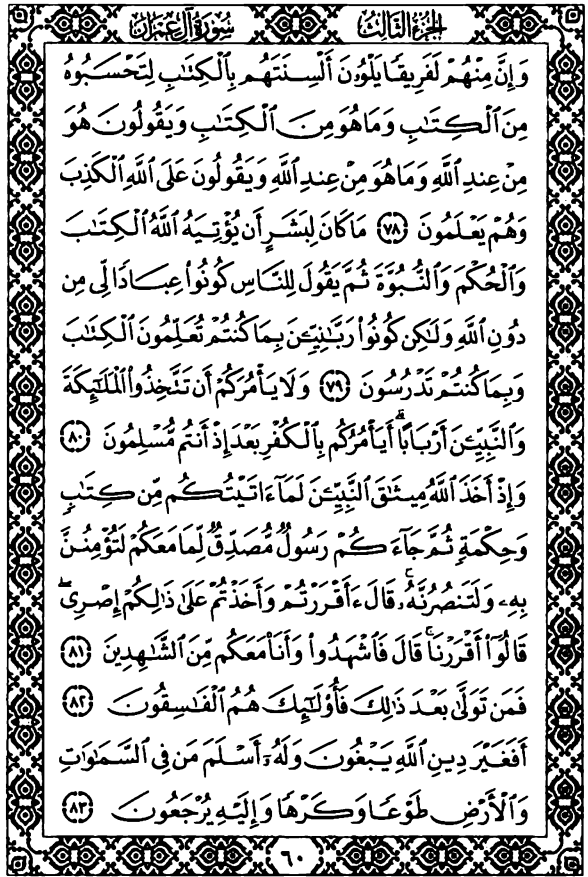 الجزء الثالث سورة آل عمران
وَإِنَّ مِنْهُمْ لَفَرِيقًا يَلْوُۥنَ أَلْسِنَتَهُم بِٱلْكِتَٰبِ لِتَحْسَبُوهُ
مِنَ ٱلْكِتَٰبِ وَمَا هُوَ مِنَ ٱلْكِتَٰبِ وَيَقُولُونَ هُوَ
مِنْ عِندِ ٱللَّهِ وَمَا هُوَ مِنْ عِندِ ٱللَّهِ وَيَقُولُونَ عَلَى ٱللَّهِ ٱلْكَذِبَ
وَهُمْ يَعْلَمُونَ ٧٨ مَا كَانَ لِبَشَرٍ أَن يُؤْتِيَهُ ٱللَّهُ ٱلْكِتَٰبَ
وَٱلْحُكْمَ وَٱلنُّبُوَّةَ ثُمَّ يَقُولَ لِلنَّاسِ كُونُوا۟ عِبَادًا لِّى مِن
دُونِ ٱللَّهِ وَلَٰكِن كُونُوا۟ رَبَّٰنِيِّۦنَ بِمَا كُنتُمْ تُعَلِّمُونَ ٱلْكِتَٰبَ
وَبِمَا كُنتُمْ تَدْرُسُونَ ٧٩ وَلَا يَأْمُرَكُمْ أَن تَتَّخِذُوا۟ ٱلْمَلَٰٓئِكَةَ
وَٱلنَّبِيِّۦنَ أَرْبَابًا ۗ أَيَأْمُرُكُم بِٱلْكُفْرِ بَعْدَ إِذْ أَنتُم مُّسْلِمُونَ ٨٠
وَإِذْ أَخَذَ ٱللَّهُ مِيثَٰقَ ٱلنَّبِيِّۦنَ لَمَآ ءَاتَيْتُكُم مِّن كِتَٰبٍ
وَحِكْمَةٍ ثُمَّ جَآءَكُمْ رَسُولٌ مُّصَدِّقٌ لِّمَا مَعَكُمْ لَتُؤْمِنُنَّ
بِهِۦ وَلَتَنصُرُنَّهُۥ ۚ قَالَ ءَأَقْرَرْتُمْ وَأَخَذْتُمْ عَلَىٰ ذَٰلِكُمْ إِصْرِى ۖ
قَالُوٓا۟ أَقْرَرْنَا ۚ قَالَ فَٱشْهَدُوا۟ وَأَنَا۠ مَعَكُم مِّنَ ٱلشَّٰهِدِينَ ٨١
فَمَن تَوَلَّىٰ بَعْدَ ذَٰلِكَ فَأُو۟لَٰٓئِكَ هُمُ ٱلْفَٰسِقُونَ ٨٢
أَفَغَيْرَ دِينِ ٱللَّهِ يَبْغُونَ وَلَهُۥٓ أَسْلَمَ مَن فِى ٱلسَّمَٰوَٰتِ
وَٱلْأَرْضِ طَوْعًا وَكَرْهًا وَإِلَيْهِ يُرْجَعُونَ ٨٣
٦٠